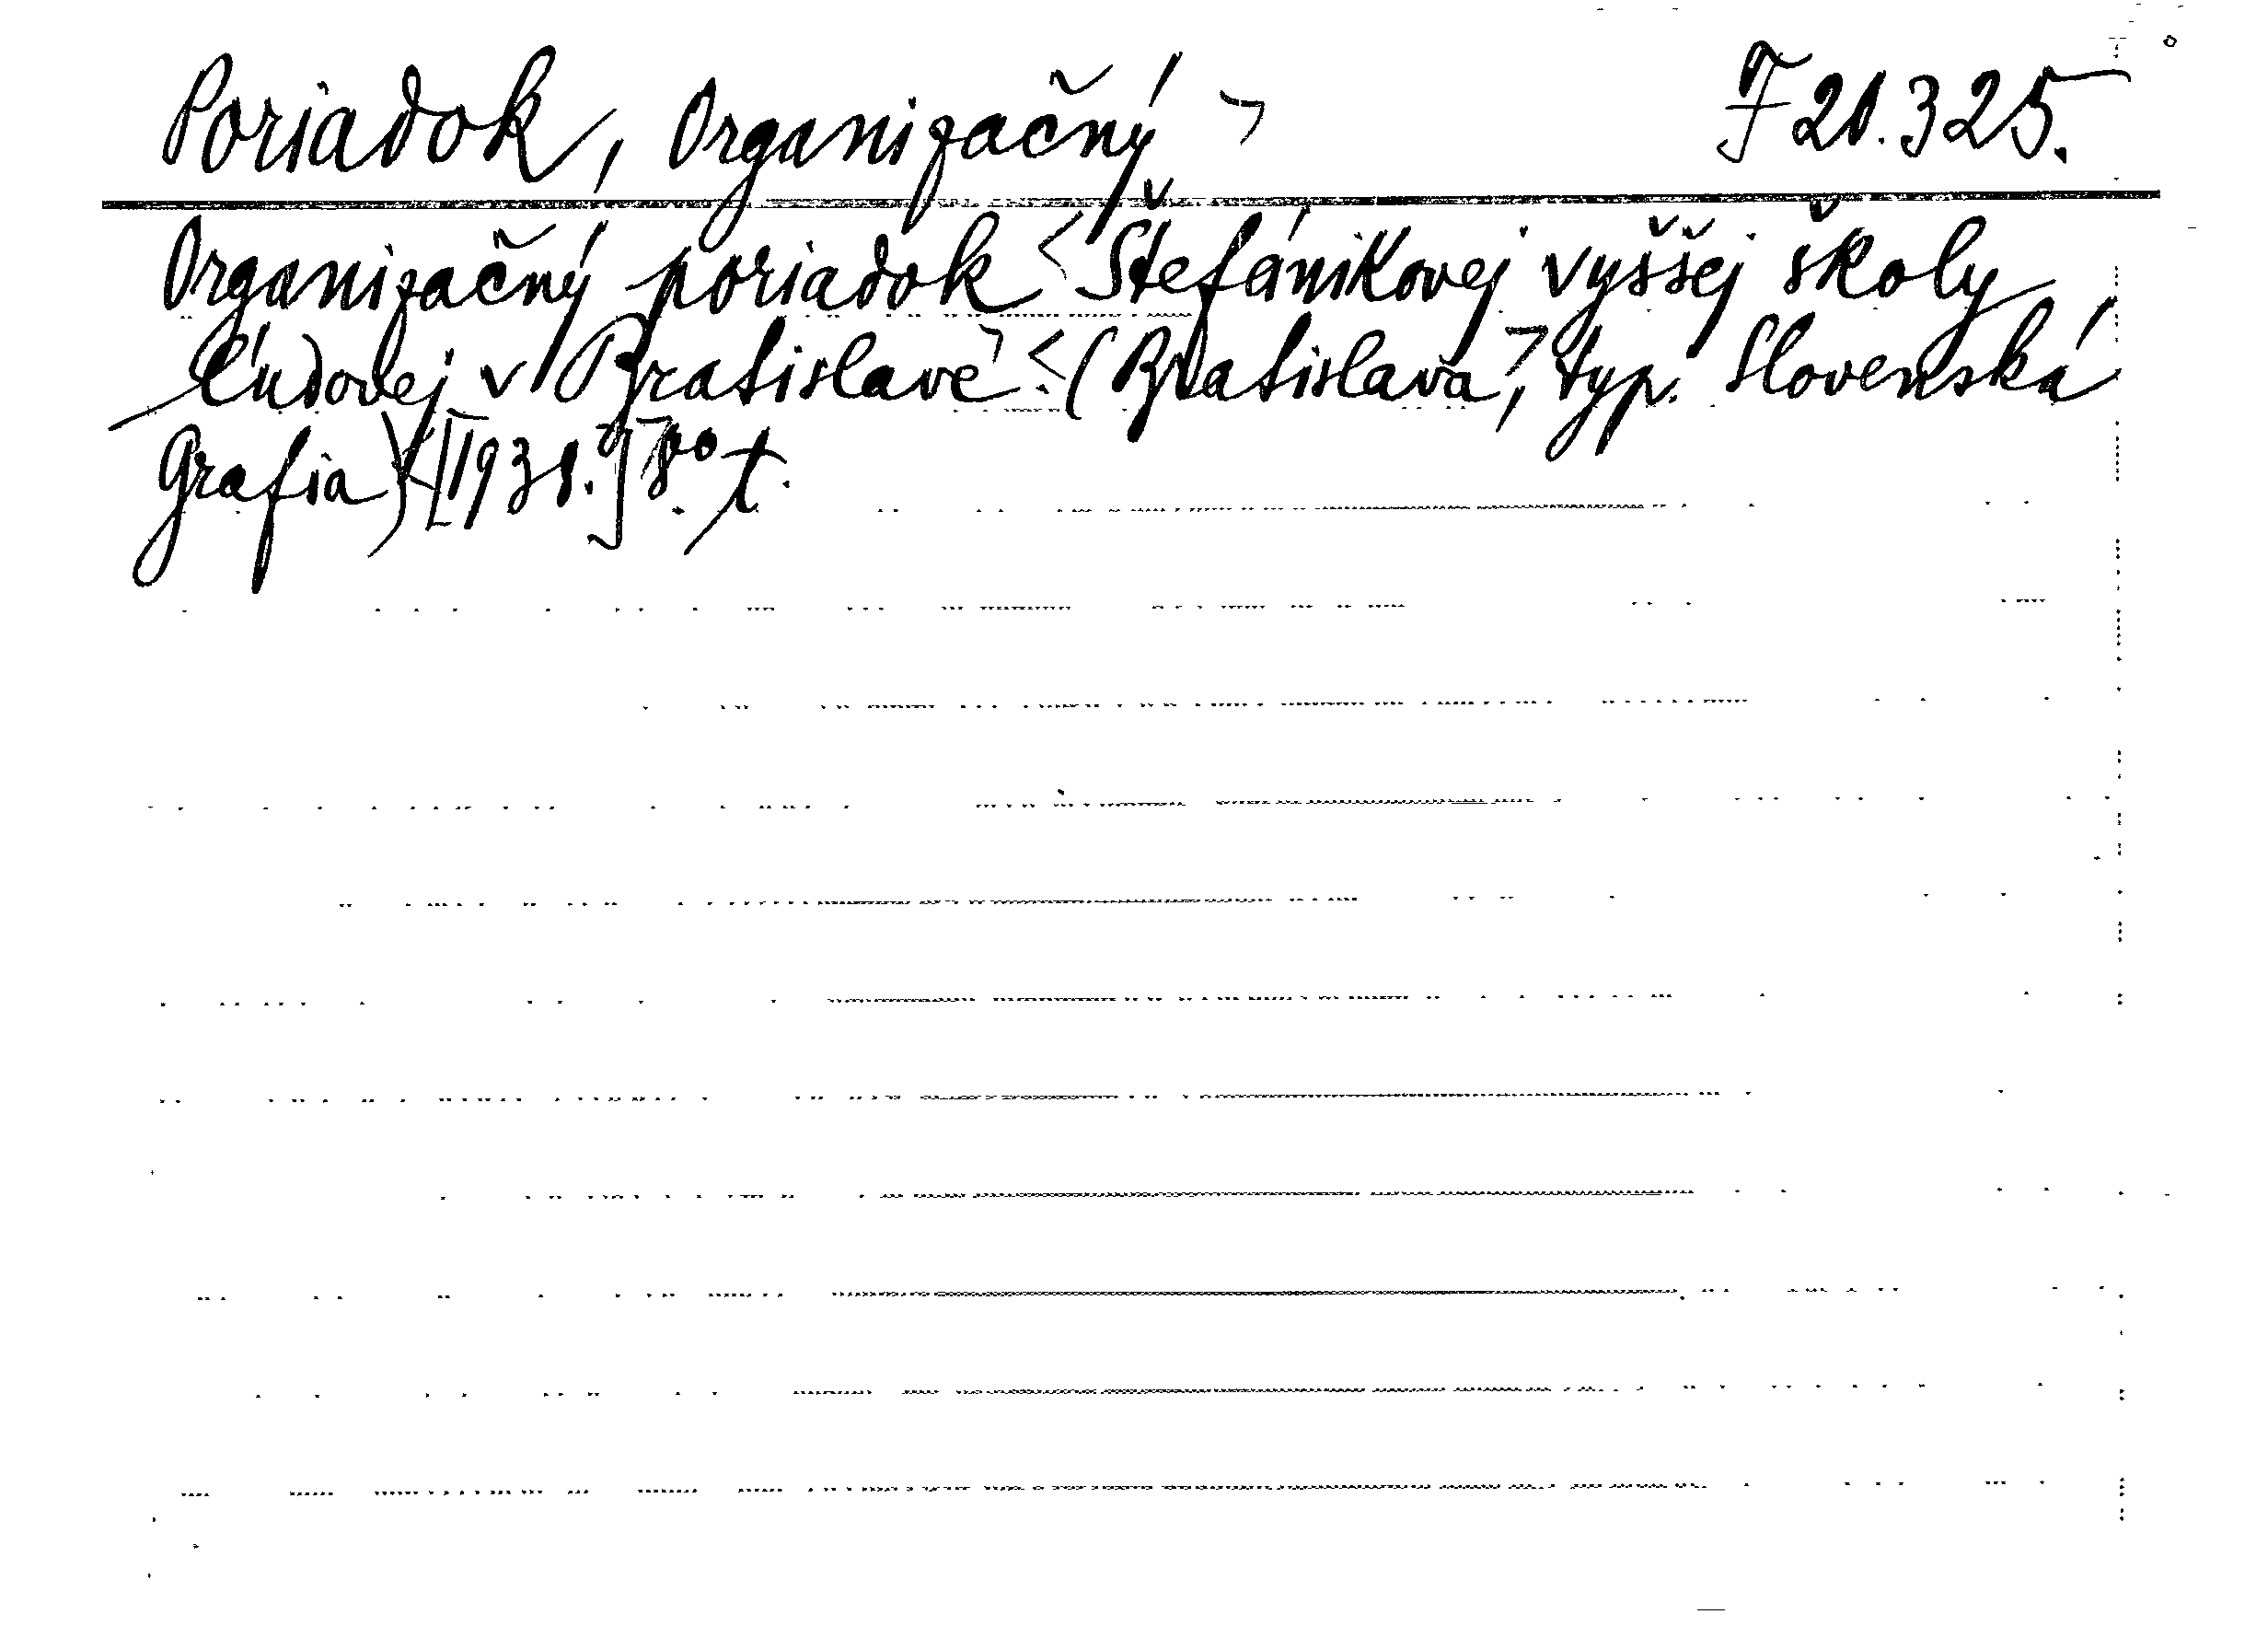 Poriadok, Organizačný > F 20.325.
Organizačný poriadok < Štefánikovej vyššej školy
ľudovej v Bratislave > < (Bratislava >, typ. Slovenská
Grafia) < [1938.] > 8° t.